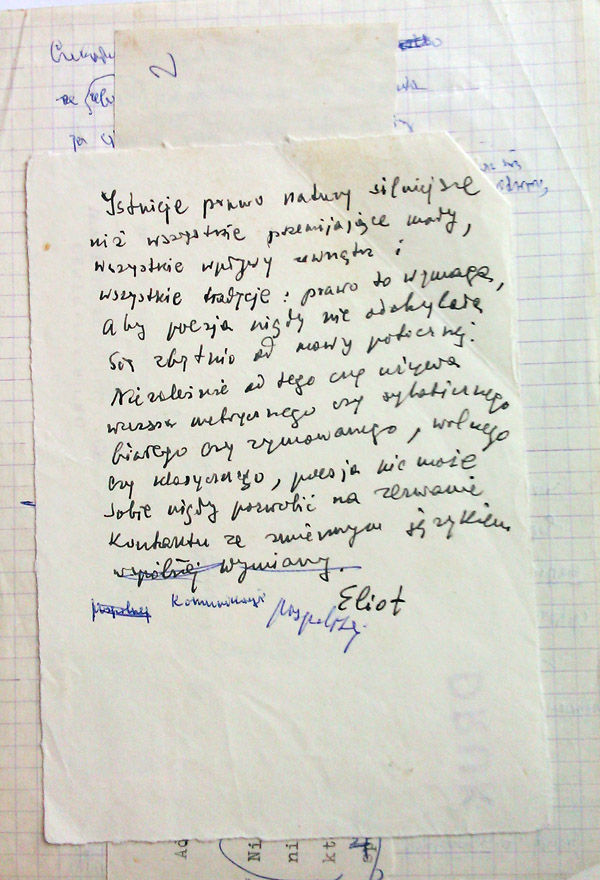 2
Istnieje prawo natury silniejsze
niż wszystkie przemijające mody,
wszystkie wpływy zewnątrz i
wszystkie tradycje: prawo to wymaga,
aby poezja nigdy nie odchylała
się zbytnio od mowy potocznej.
Niezależnie od tego czy używa
wiersza metrycznego czy sylabicznego
białego czy rymowanego, wolnego
czy klasycznego, poezja nie może
sobie nigdy pozwolić na zerwanie
kontaktu ze zmiennym językiem
wspólnej wymiany.
pospolitej komunikacji pospolitej.
Eliot
DRUK
Ad
Ni
ni
kt
sp